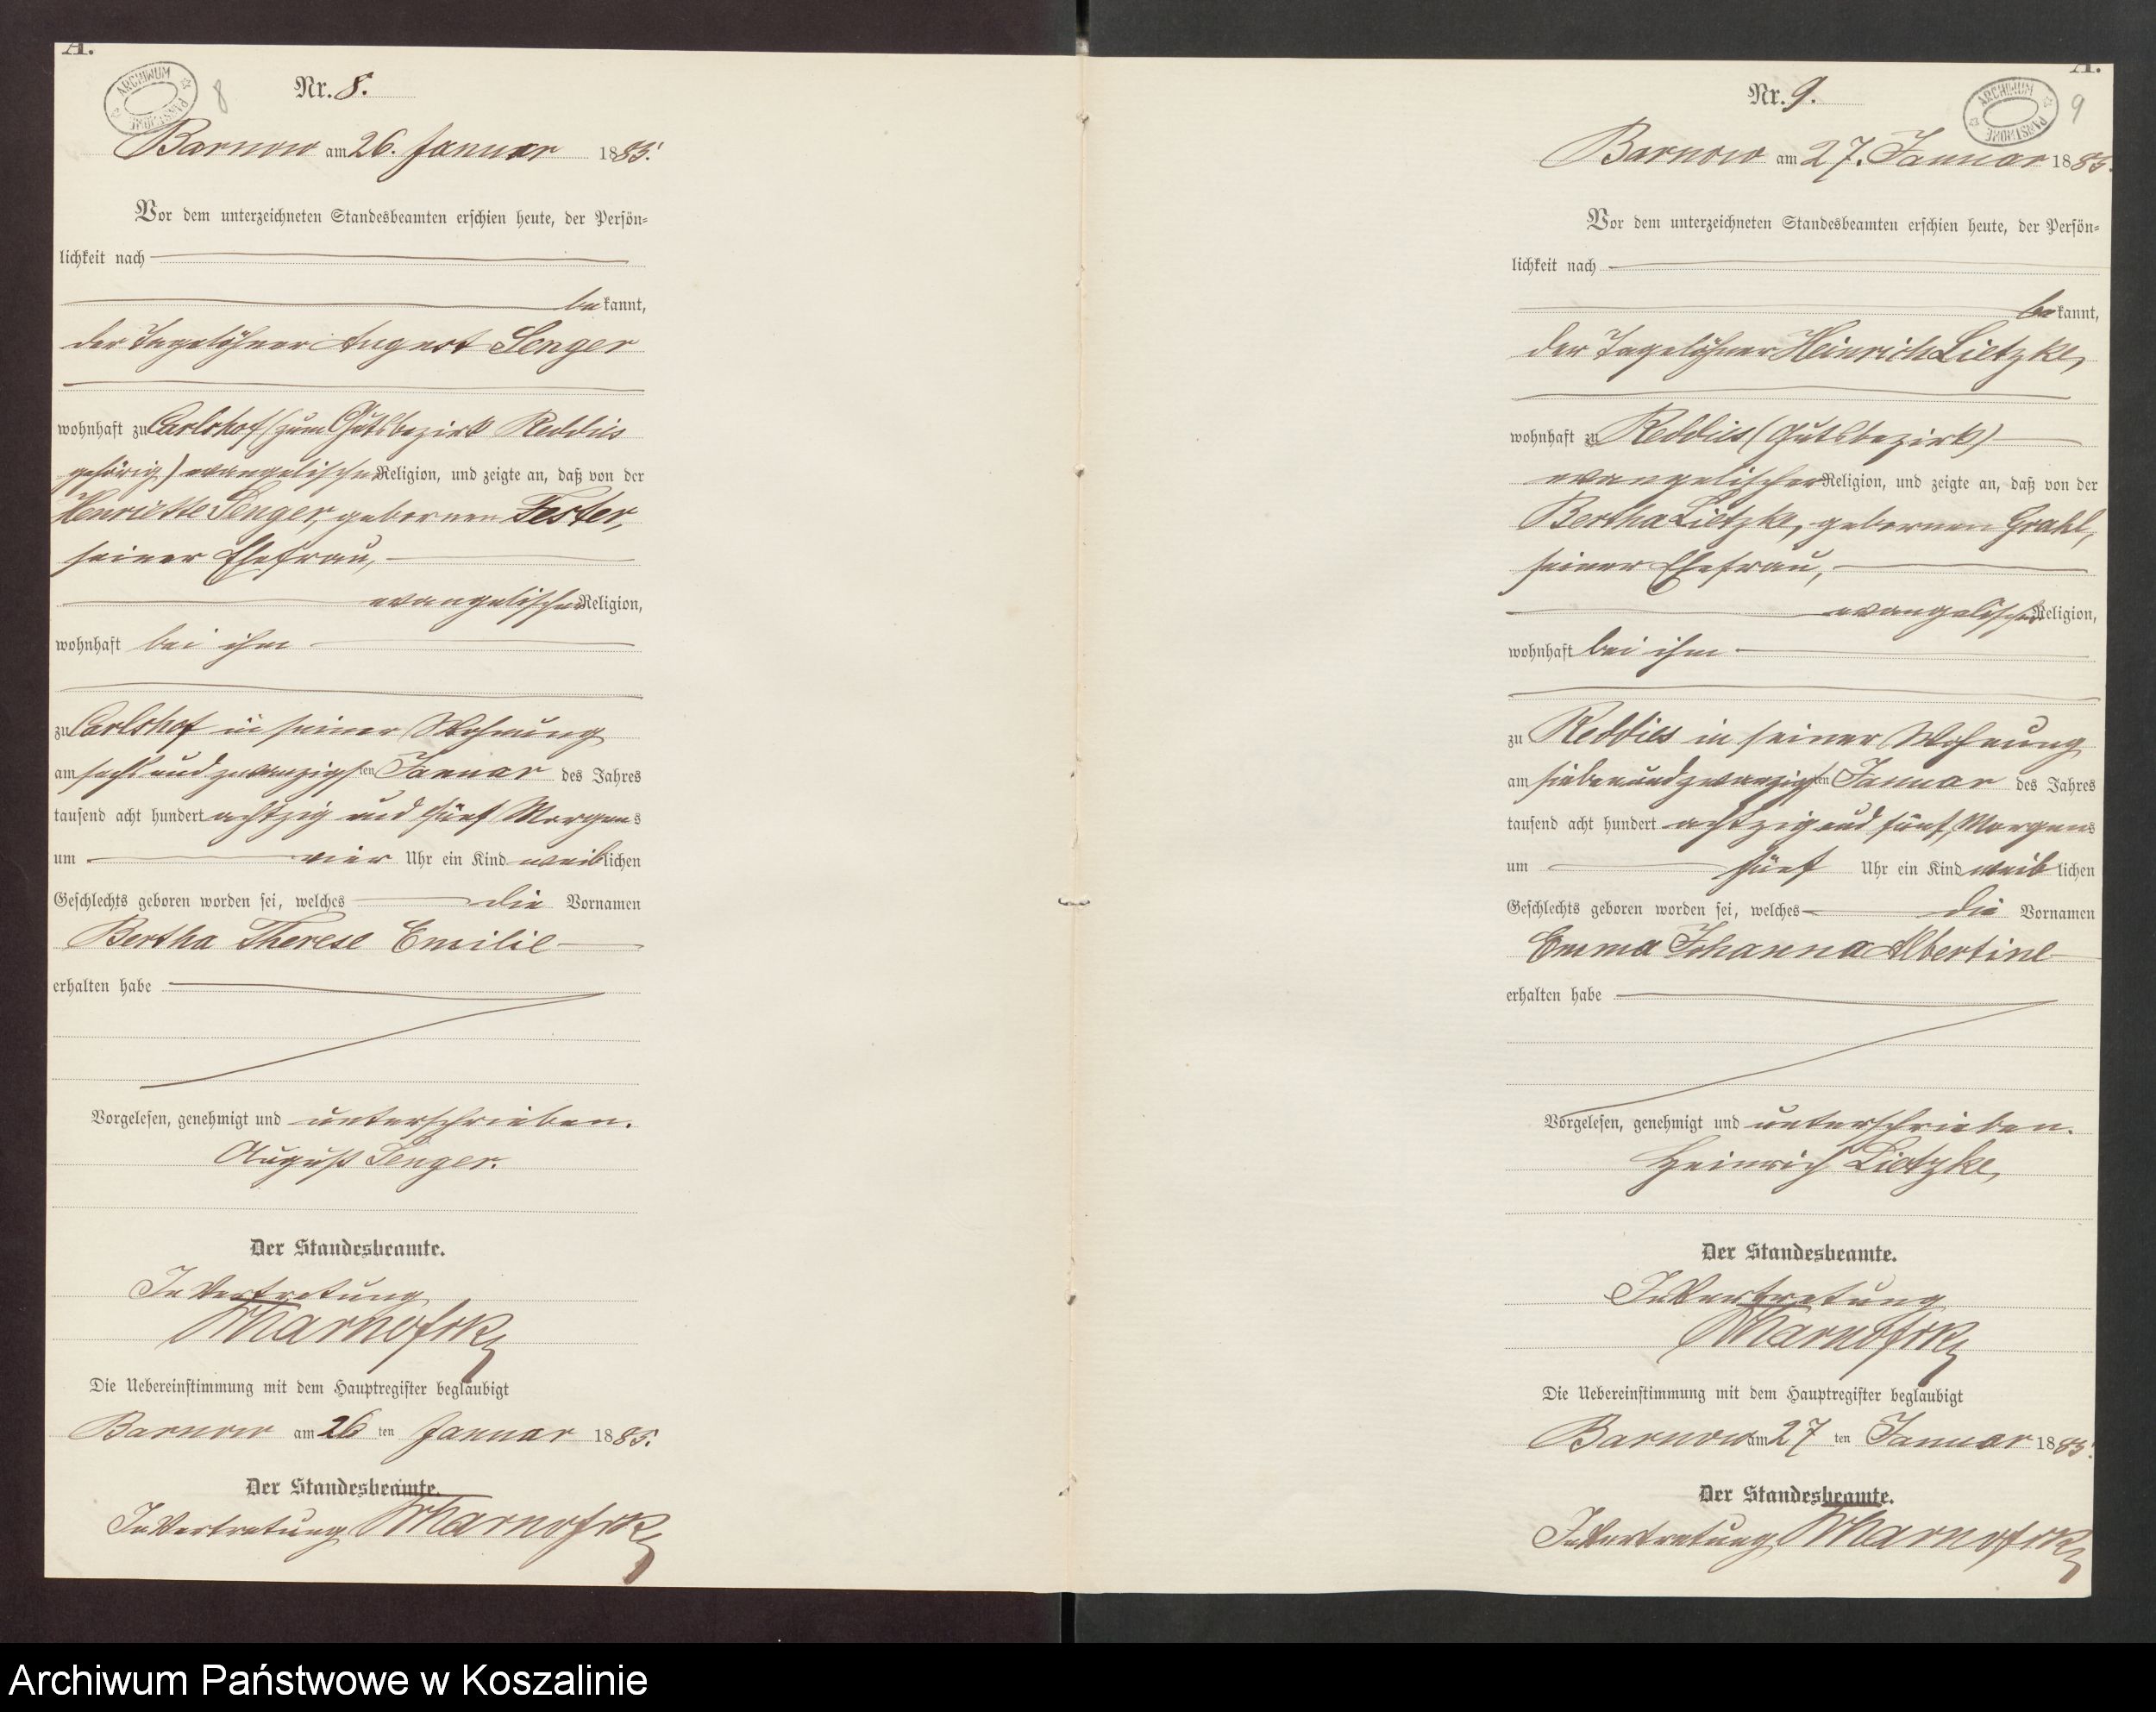 A.
ARCHIWUM PAŃSTWOWE
8
Nr. 8.
Barnow am 26. Januar 1885.
Vor dem unterzeichneten Standesbeamten erschien heute, der Persön-
lichkeit nach
bekannt,
der Tagelöhner August Senger
wohnhaft zu Carlshof (zum Gutsbezirk Reddies
gehörig) evangelischer Religion, und zeigte an, daß von der
Henriette Senger, gebornen Fester,
seiner Ehefrau,
evangelischer Religion,
wohnhaft bei ihm
zu Carlshof in seiner Wohnung
am sechs und zwanzigsten Januar des Jahres
tausend acht hundert achtzig und fünf Morgens
um vier Uhr ein Kind weiblichen
Geschlechts geboren worden sei, welches die Vornamen
Bertha Therese Emilie
erhalten habe
Vorgelesen, genehmigt und unterschrieben.
August Senger.
Der Standesbeamte.
In Vertretung
Die Uebereinstimmung mit dem Hauptregister beglaubigt
Barnow am 26 ten Januar 1885.
Der Standesbeamte.
In Vertretung
A.
ARCHIWUM PAŃSTWOWE
9
Nr. 9.
Barnow am 27. Januar 1885.
Vor dem unterzeichneten Standesbeamten erschien heute, der Persön-
lichkeit nach
bekannt,
der Tagelöhner Heinrich Lietzke,
wohnhaft zu Reddies (Gutsbezirk)
evangelischer Religion, und zeigte an, daß von der
Bertha Lietzke, gebornen Grahl,
seiner Ehefrau,
evangelischer Religion,
wohnhaft bei ihm
zu Reddies in seiner Wohnung
am sieben und zwanzigsten Januar des Jahres
tausend acht hundert achtzig und fünf, Morgens
um fünf Uhr ein Kind weiblichen
Geschlechts geboren worden sei, welches die Vornamen
Emma Johanna Albertine
erhalten habe
Vorgelesen, genehmigt und unterschrieben.
Heinrich Lietzke,
Der Standesbeamte.
In Vertretung
Die Uebereinstimmung mit dem Hauptregister beglaubigt
Barnow am 27 ten Januar 1885.
Der Standesbeamte.
In Vertretung
Archiwum Państwowe w Koszalinie